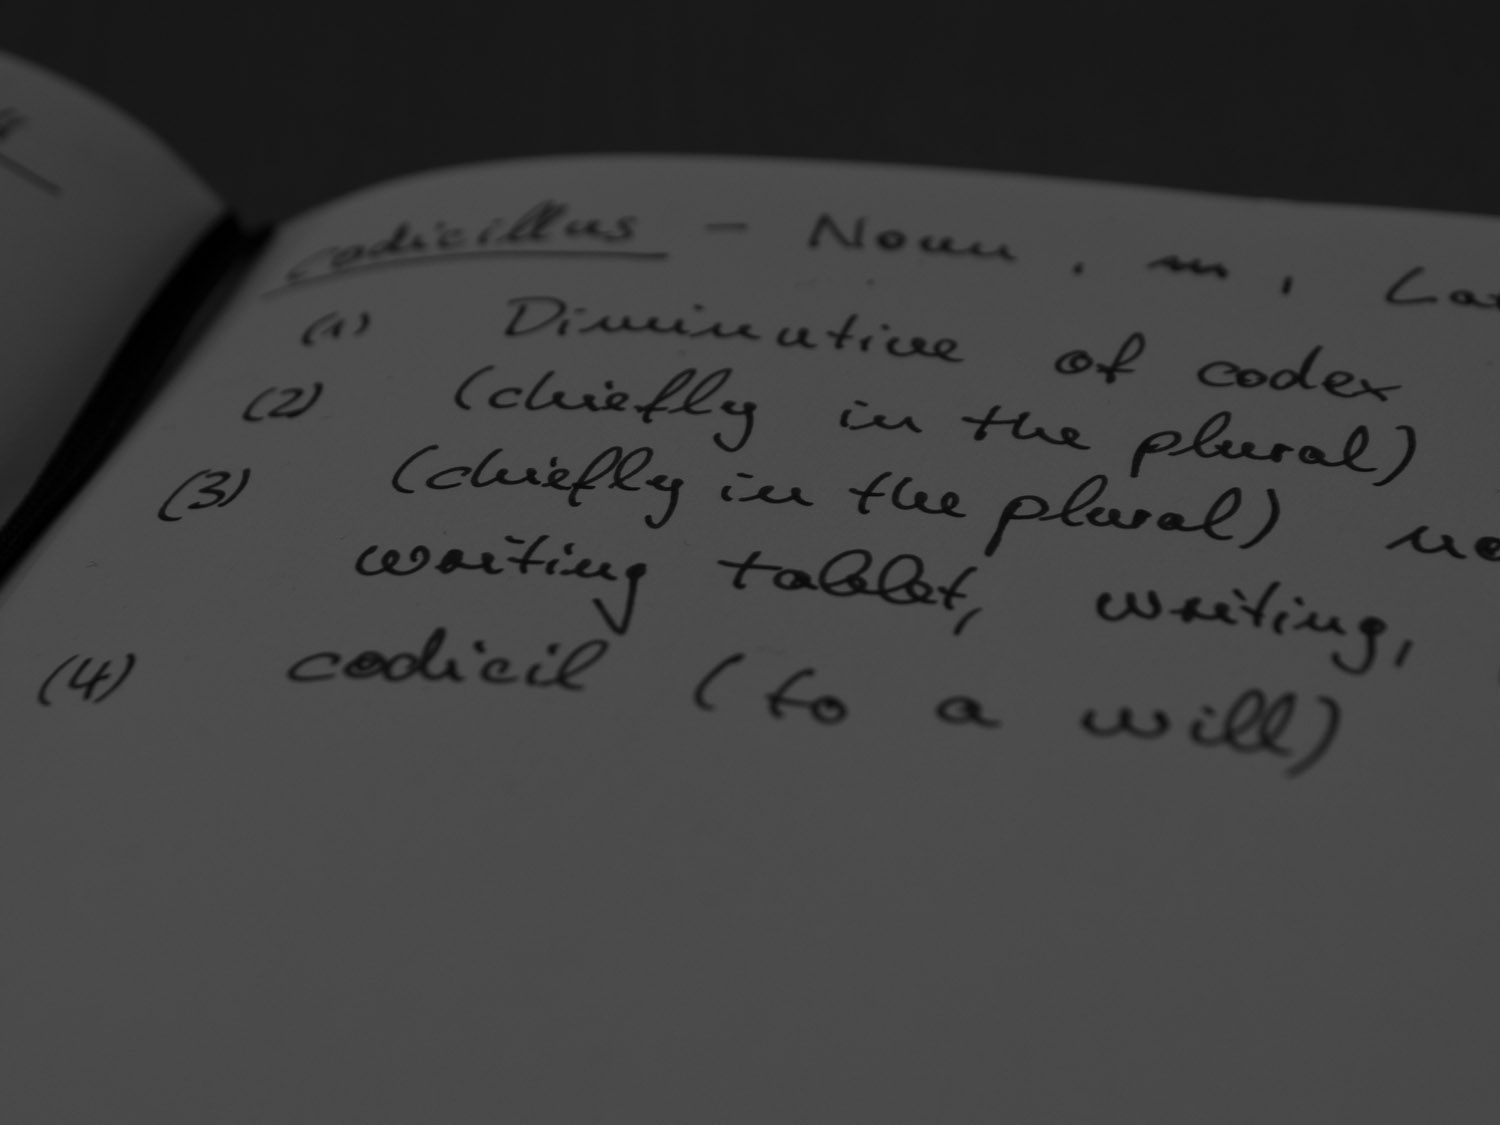 codicillus - Noun, m,
(1) Diminutive of codex
(2) (chiefly in the plural)
(3) (chiefly in the plural)
writing tablet, writing,
(4) codicil (to a will)